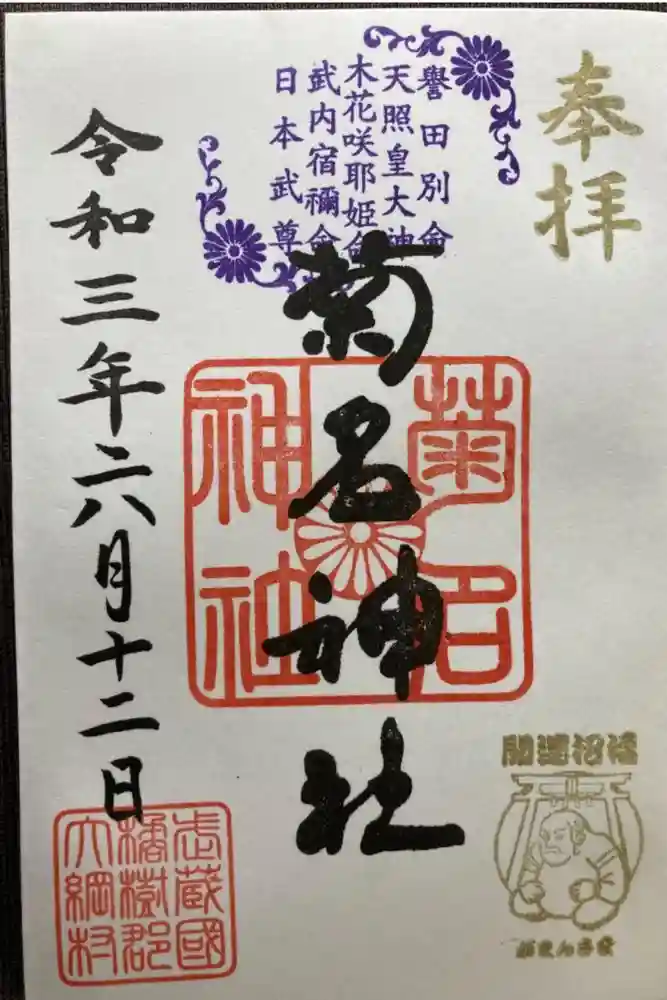 奉拝
譽田別命
天照皇大神
木花咲耶姫命
武内宿禰命
日本武尊
菊名神社
菊名
神社
令和三年六月十二日
武蔵國
橘樹郡
大綱村
開運招福
がまんさま